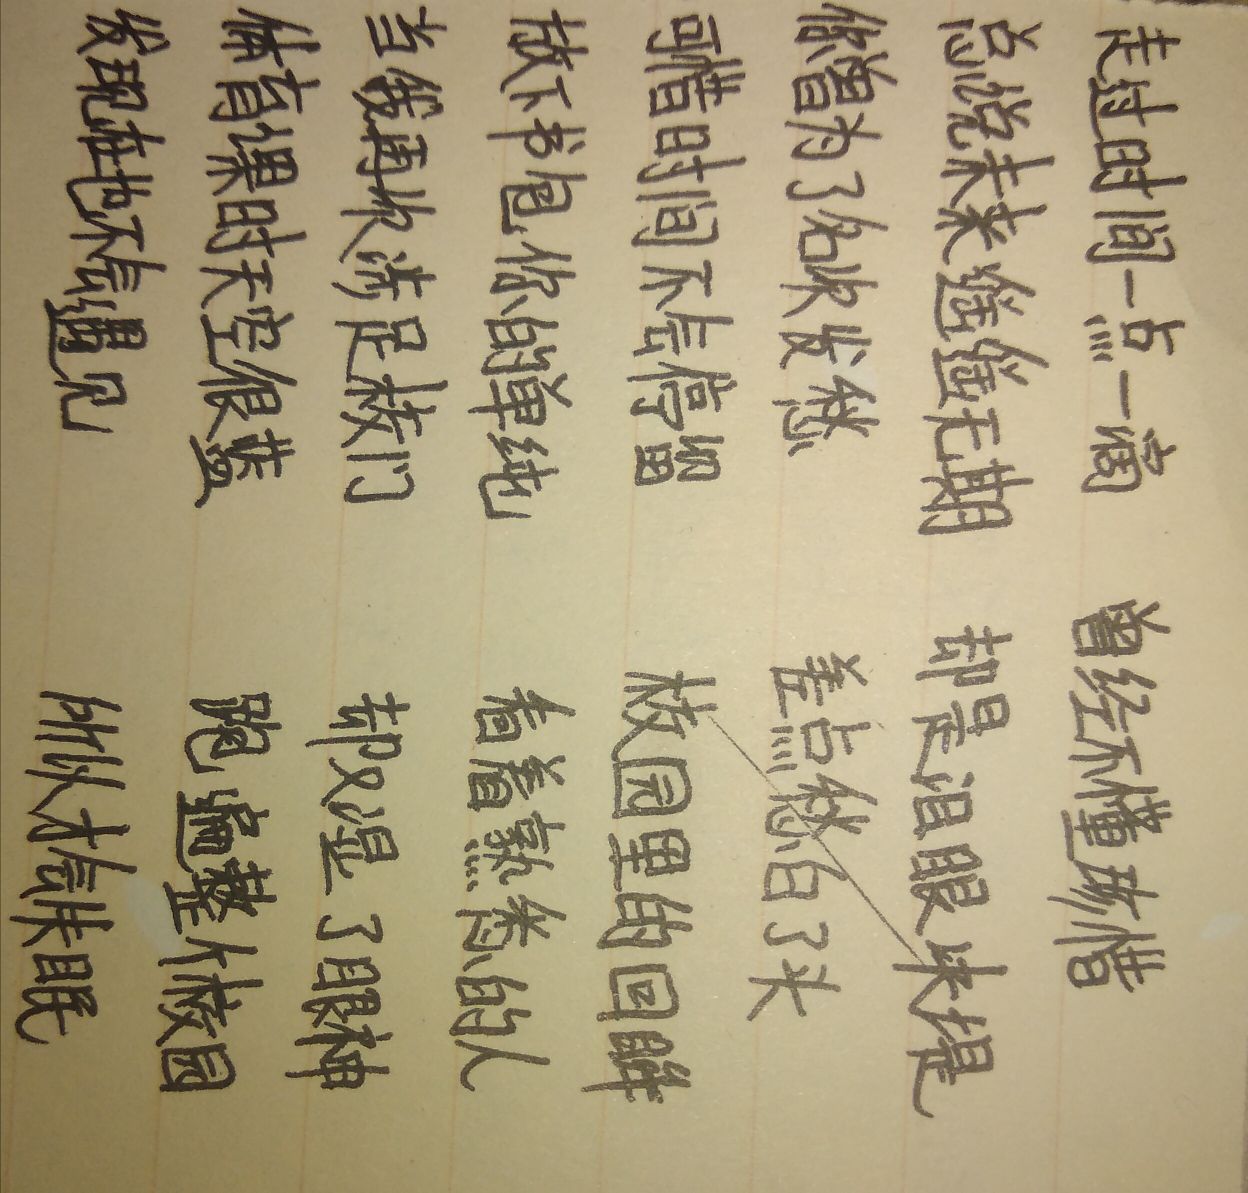 走过时间一点一滴 曾经不懂珍惜
总说未来遥遥无期 却是泪眼堤
你曾为了名次发愁 差点愁白了头
可惜时间不会停留 校园里的回眸
放下书包,你的单纯 看着熟悉的人
当我再次涉足校门 却又湿了眼神
体育课时天空很蓝 跑遍整个校园
发现在也不会遇见 所以才会失眠